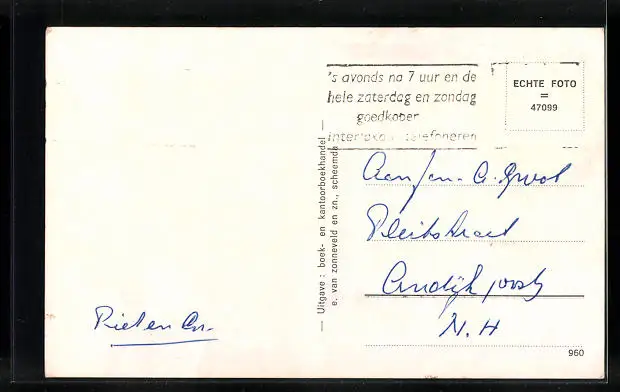 's avonds na 7 uur en de
hele zaterdag en zondag
goedkoper
interlokaal telefoneren
ECHTE FOTO
=
47099
Uitgave : boek- en kantoorboekhandel
e. van zonneveld en zn., scheemda
Aan Jan. G. Groot
Pleitstraat
Andijk
N.H
Piet en
960